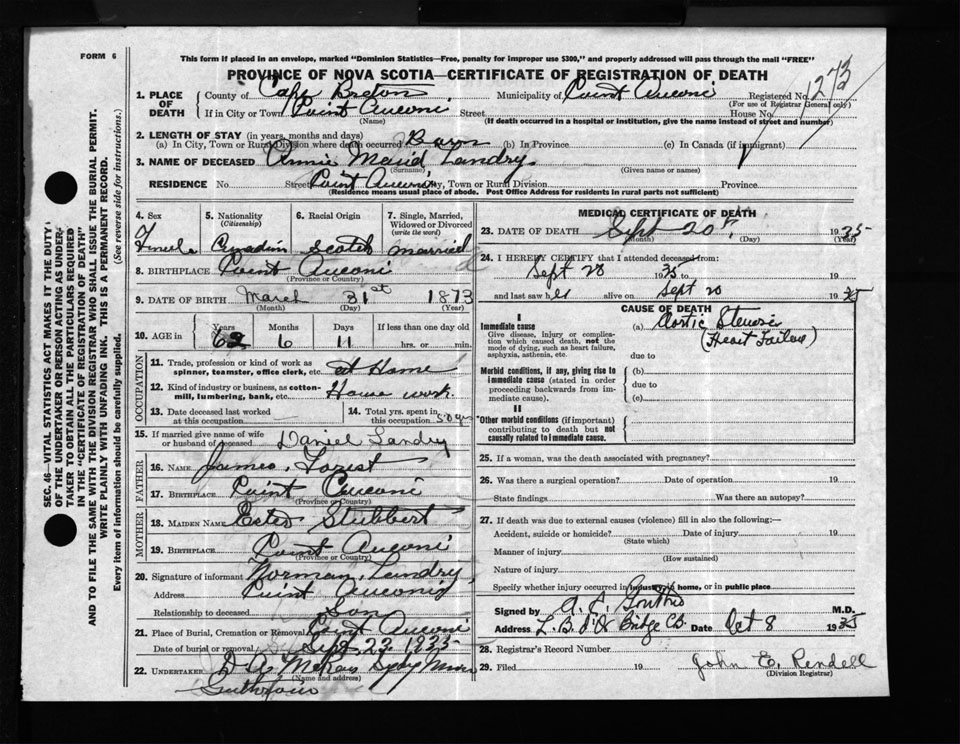 FORM 6
This form if placed in an envelope, marked "Dominion Statistics—Free, penalty for improper use $300," and properly addressed will pass through the mail "FREE"
PROVINCE OF NOVA SCOTIA—CERTIFICATE OF REGISTRATION OF DEATH
1273
1. PLACE OF DEATH
County of Cape Breton Municipality of Point Auconi Registered No.
(For use of Registrar General only)
If in City or Town Point Auconi Street House No.
(Name) (If death occurred in a hospital or institution, give the name instead of street and number)
2. LENGTH OF STAY (in years, months and days)
(a) In City, Town or Rural Division where death occurred Born (b) In Province (c) In Canada (if immigrant)
3. NAME OF DECEASED Annie Maud Landry
(Surname) (Given name or names)
RESIDENCE No. Street Point Auconi City, Town or Rural Division Province
(Residence means usual place of abode. Post Office Address for residents in rural parts not sufficient)
4. Sex 5. Nationality (Citizenship) 6. Racial Origin 7. Single, Married, Widowed or Divorced (write the word)
Female Canadian Scotch Married
8. BIRTHPLACE Point Auconi
(Province or Country)
9. DATE OF BIRTH March 31st 1873
(Month) (Day) (Year)
10. AGE in Years Months Days If less than one day old
62 6 11 hrs. or min.
OCCUPATION
11. Trade, profession or kind of work as spinner, teamster, office clerk, etc. at Home
12. Kind of industry or business, as cotton-mill, lumbering, bank, etc. House work.
13. Date deceased last worked at this occupation 14. Total yrs. spent in this occupation 50 yrs
15. If married give name of wife or husband of deceased Daniel Landry
FATHER
16. NAME James Forest
17. BIRTHPLACE Point Auconi
(Province or Country)
MOTHER
18. MAIDEN NAME Ester Stubbert
19. BIRTHPLACE Point Auconi
(Province or Country)
20. Signature of informant Norman Landry
Address Point Auconi
Relationship to deceased Son
21. Place of Burial, Cremation or Removal Point Auconi
Date of burial or removal Sept. 22 1935
22. UNDERTAKER Sydney Mines
(Name and address)
MEDICAL CERTIFICATE OF DEATH
23. DATE OF DEATH Sept 20th 1935
(Month) (Day) (Year)
24. I HEREBY CERTIFY that I attended deceased from:
Sept 28 1935 to 19
and last saw her alive on Sept 20 1935
CAUSE OF DEATH
I
Immediate cause
Give disease, injury or complication which caused death, not the mode of dying, such as heart failure, asphyxia, asthenia, etc.
(a) Aortic Stenosis
(Heart Failure)
due to
Morbid conditions, if any, giving rise to immediate cause (stated in order proceeding backwards from immediate cause).
(b)
due to
(c)
II
Other morbid conditions (if important) contributing to death but not causally related to immediate cause.
25. If a woman, was the death associated with pregnancy?
26. Was there a surgical operation? Date of operation 19
State findings Was there an autopsy?
27. If death was due to external causes (violence) fill in also the following:—
Accident, suicide or homicide? Date of injury 19
(State which)
Manner of injury
(How sustained)
Nature of injury
Specify whether injury occurred in industry, in home, or in public place
Signed by M.D.
Address Date Oct 8 1935
28. Registrar's Record Number
29. Filed 19 John E. Rendell
(Division Registrar)
SEC. 46—VITAL STATISTICS ACT MAKES IT THE DUTY OF THE UNDERTAKER OR PERSON ACTING AS UNDERTAKER TO OBTAIN ALL THE PARTICULARS REQUIRED IN THE "CERTIFICATE OF REGISTRATION OF DEATH"
AND TO FILE THE SAME WITH THE DIVISION REGISTRAR WHO SHALL ISSUE THE BURIAL PERMIT.
WRITE PLAINLY WITH UNFADING INK. THIS IS A PERMANENT RECORD.
Every item of information should be carefully supplied. (See reverse side for instructions.)